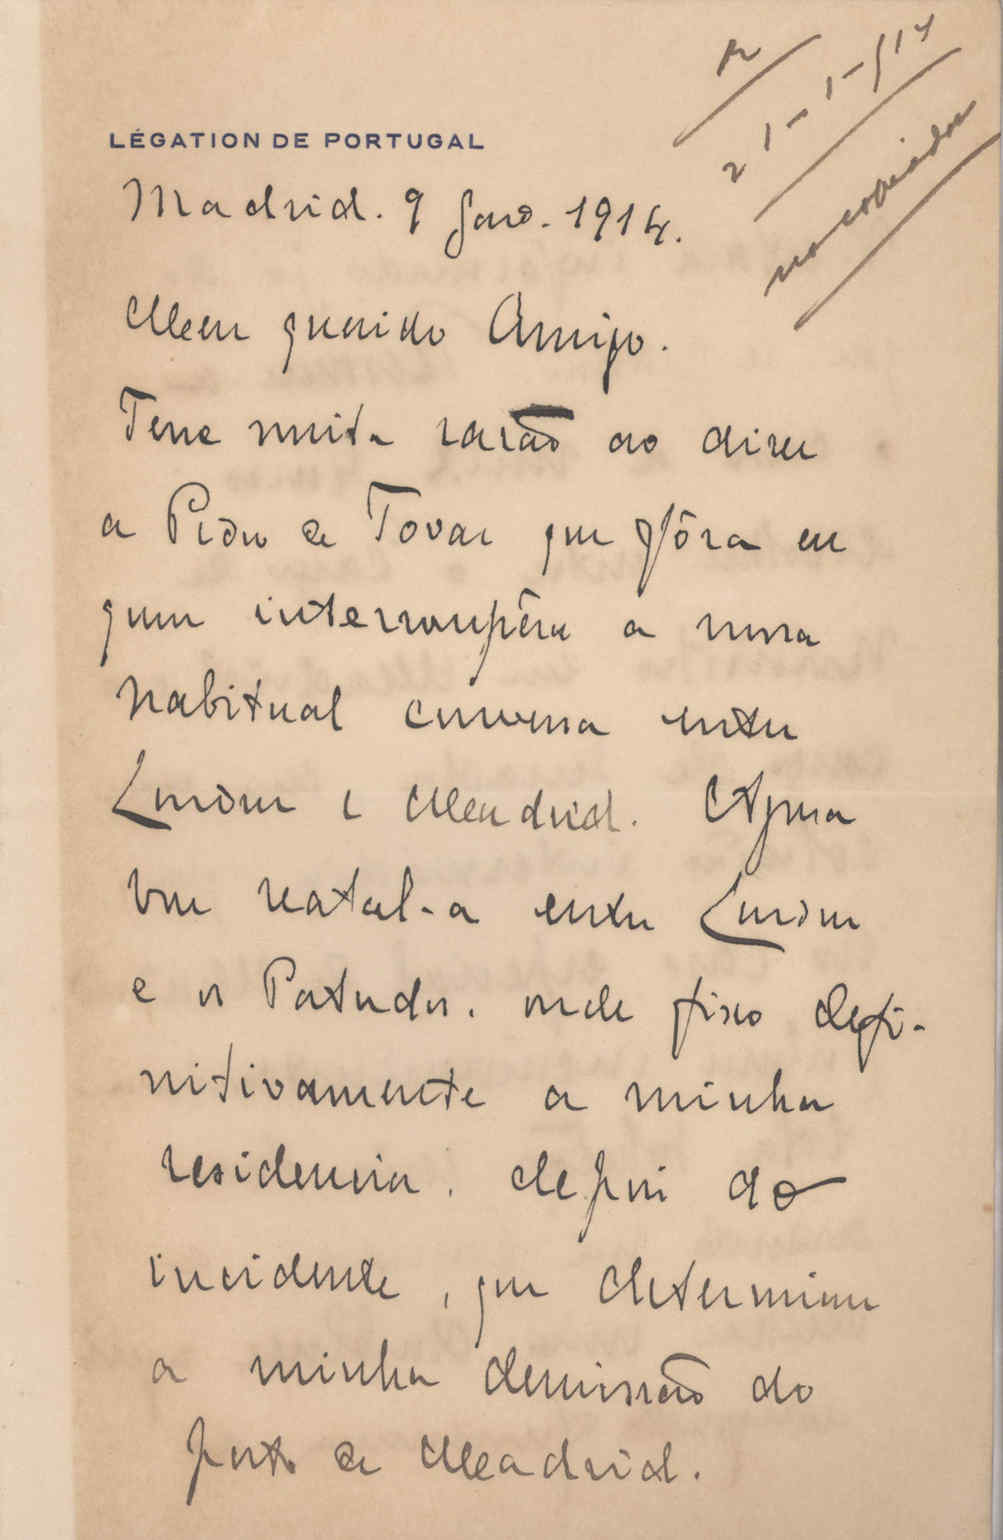 R
21-1-914
não copiador
LÉGATION DE PORTUGAL
Madrid. 9 Janº. 1914.
Meu querido Amigo.
Teve muita razão ao dizer
a Pedro de Tovar que fôra eu
quem interrompêra a nossa
habitual conversa entre
Londres e Madrid. Agora
vou reatal-a entre Londres
e os Patudos, onde fixo defi-
nitivamente a minha
residencia, depois do
incidente, que determinou
a minha demissão do
posto de Madrid.